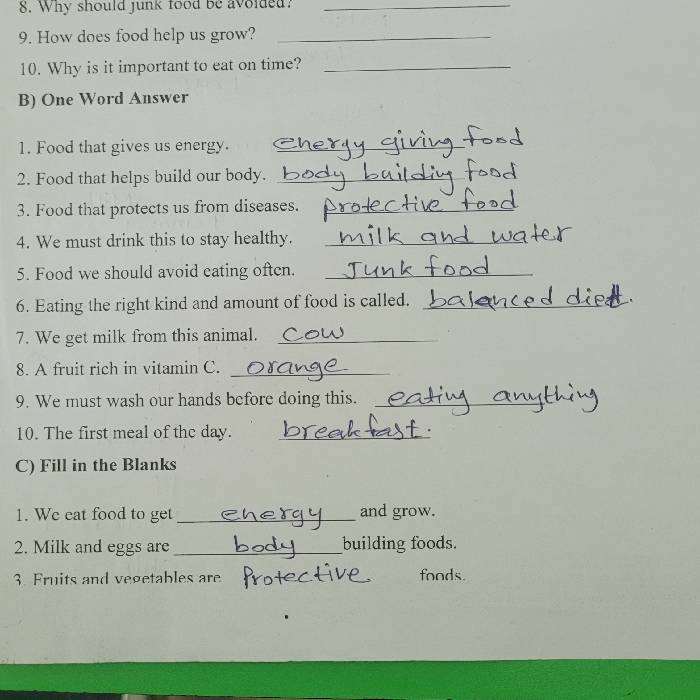 8. Why should junk food be avoided?
9. How does food help us grow?
10. Why is it important to eat on time?
B) One Word Answer
1. Food that gives us energy. energy giving food
2. Food that helps build our body. body building food
3. Food that protects us from diseases. protective food
4. We must drink this to stay healthy. milk and water
5. Food we should avoid eating often. Junk food
6. Eating the right kind and amount of food is called. balanced diet.
7. We get milk from this animal. cow
8. A fruit rich in vitamin C. orange
9. We must wash our hands before doing this. eating anything
10. The first meal of the day. breakfast.
C) Fill in the Blanks
1. We eat food to get energy and grow.
2. Milk and eggs are body building foods.
3. Fruits and vegetables are Protective foods.